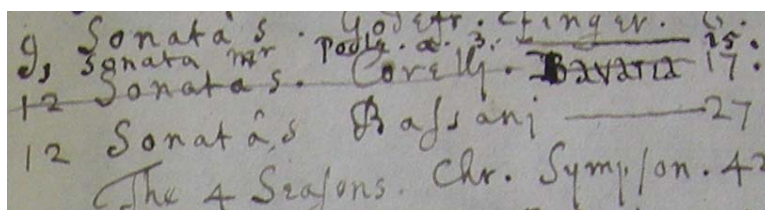 9, Sonata's. Godefr. Finger.
Sonata mr Podle. a. 3. 15.
12 Sonatas. Corelly. Bavaria 17.
12 Sonatâs Baſsani 27
The 4 Seaſons. Chr. Sympſon. 42